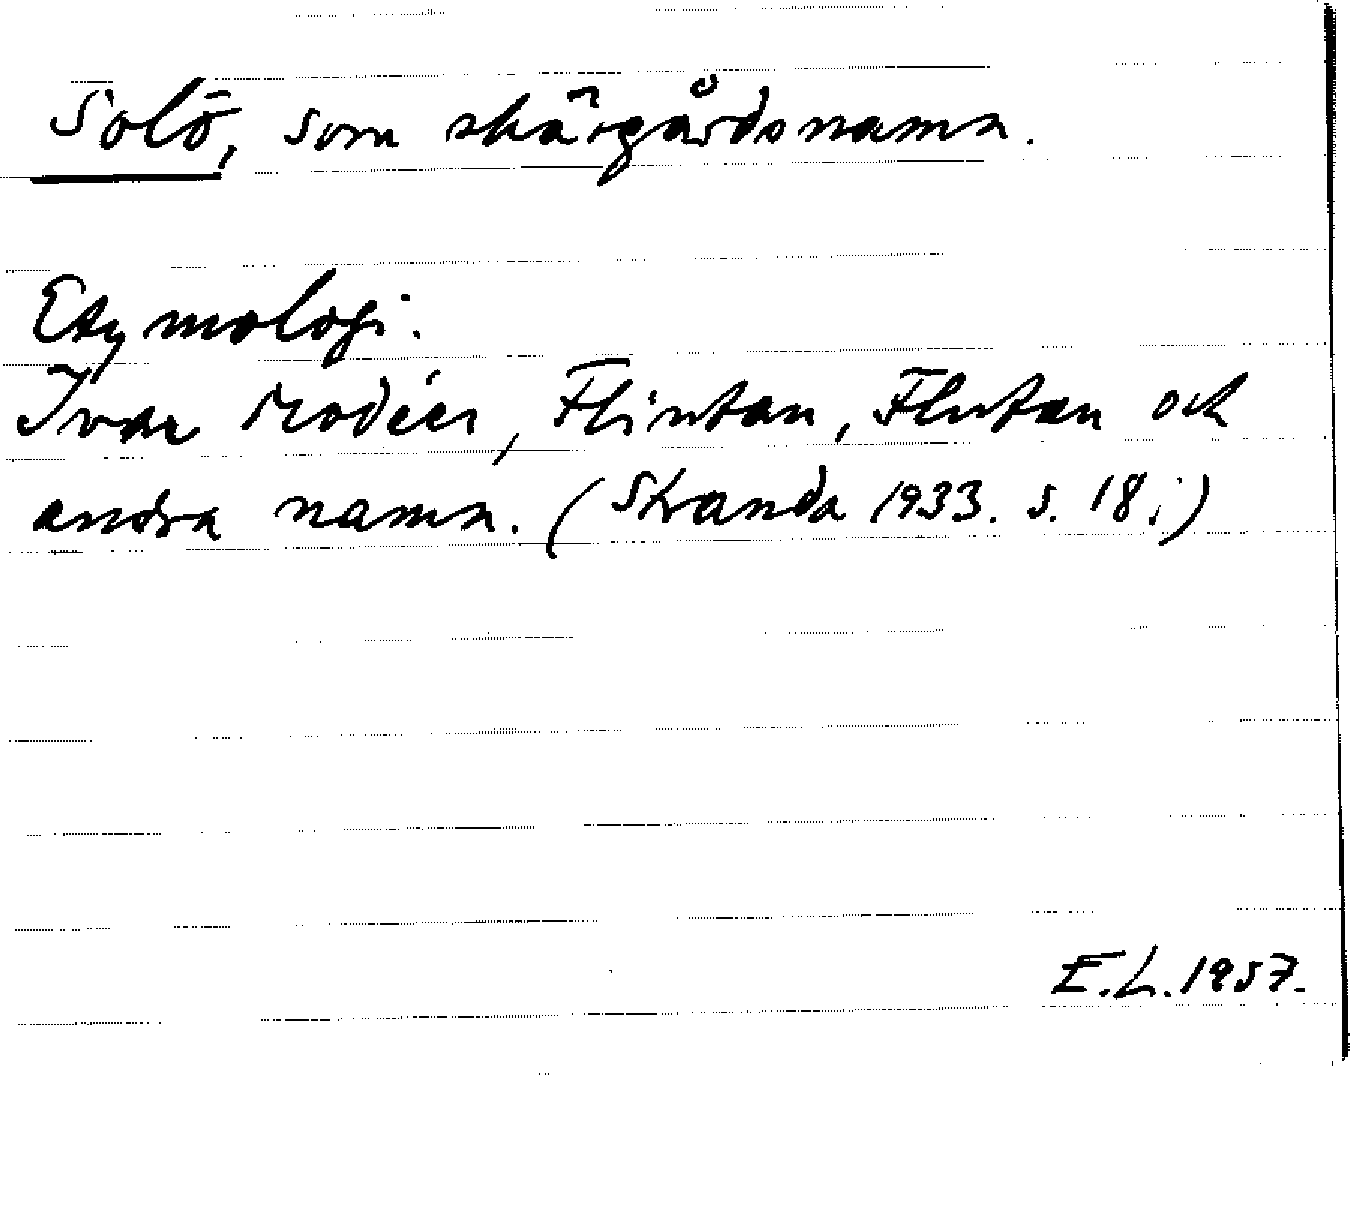 Solö, som skärgårdsnamn.
Etymologi.
Ivar Modéer, Flintan, Flutan och
andra namn. (Stranda 1933. s. 18.)
E.L. 1957.